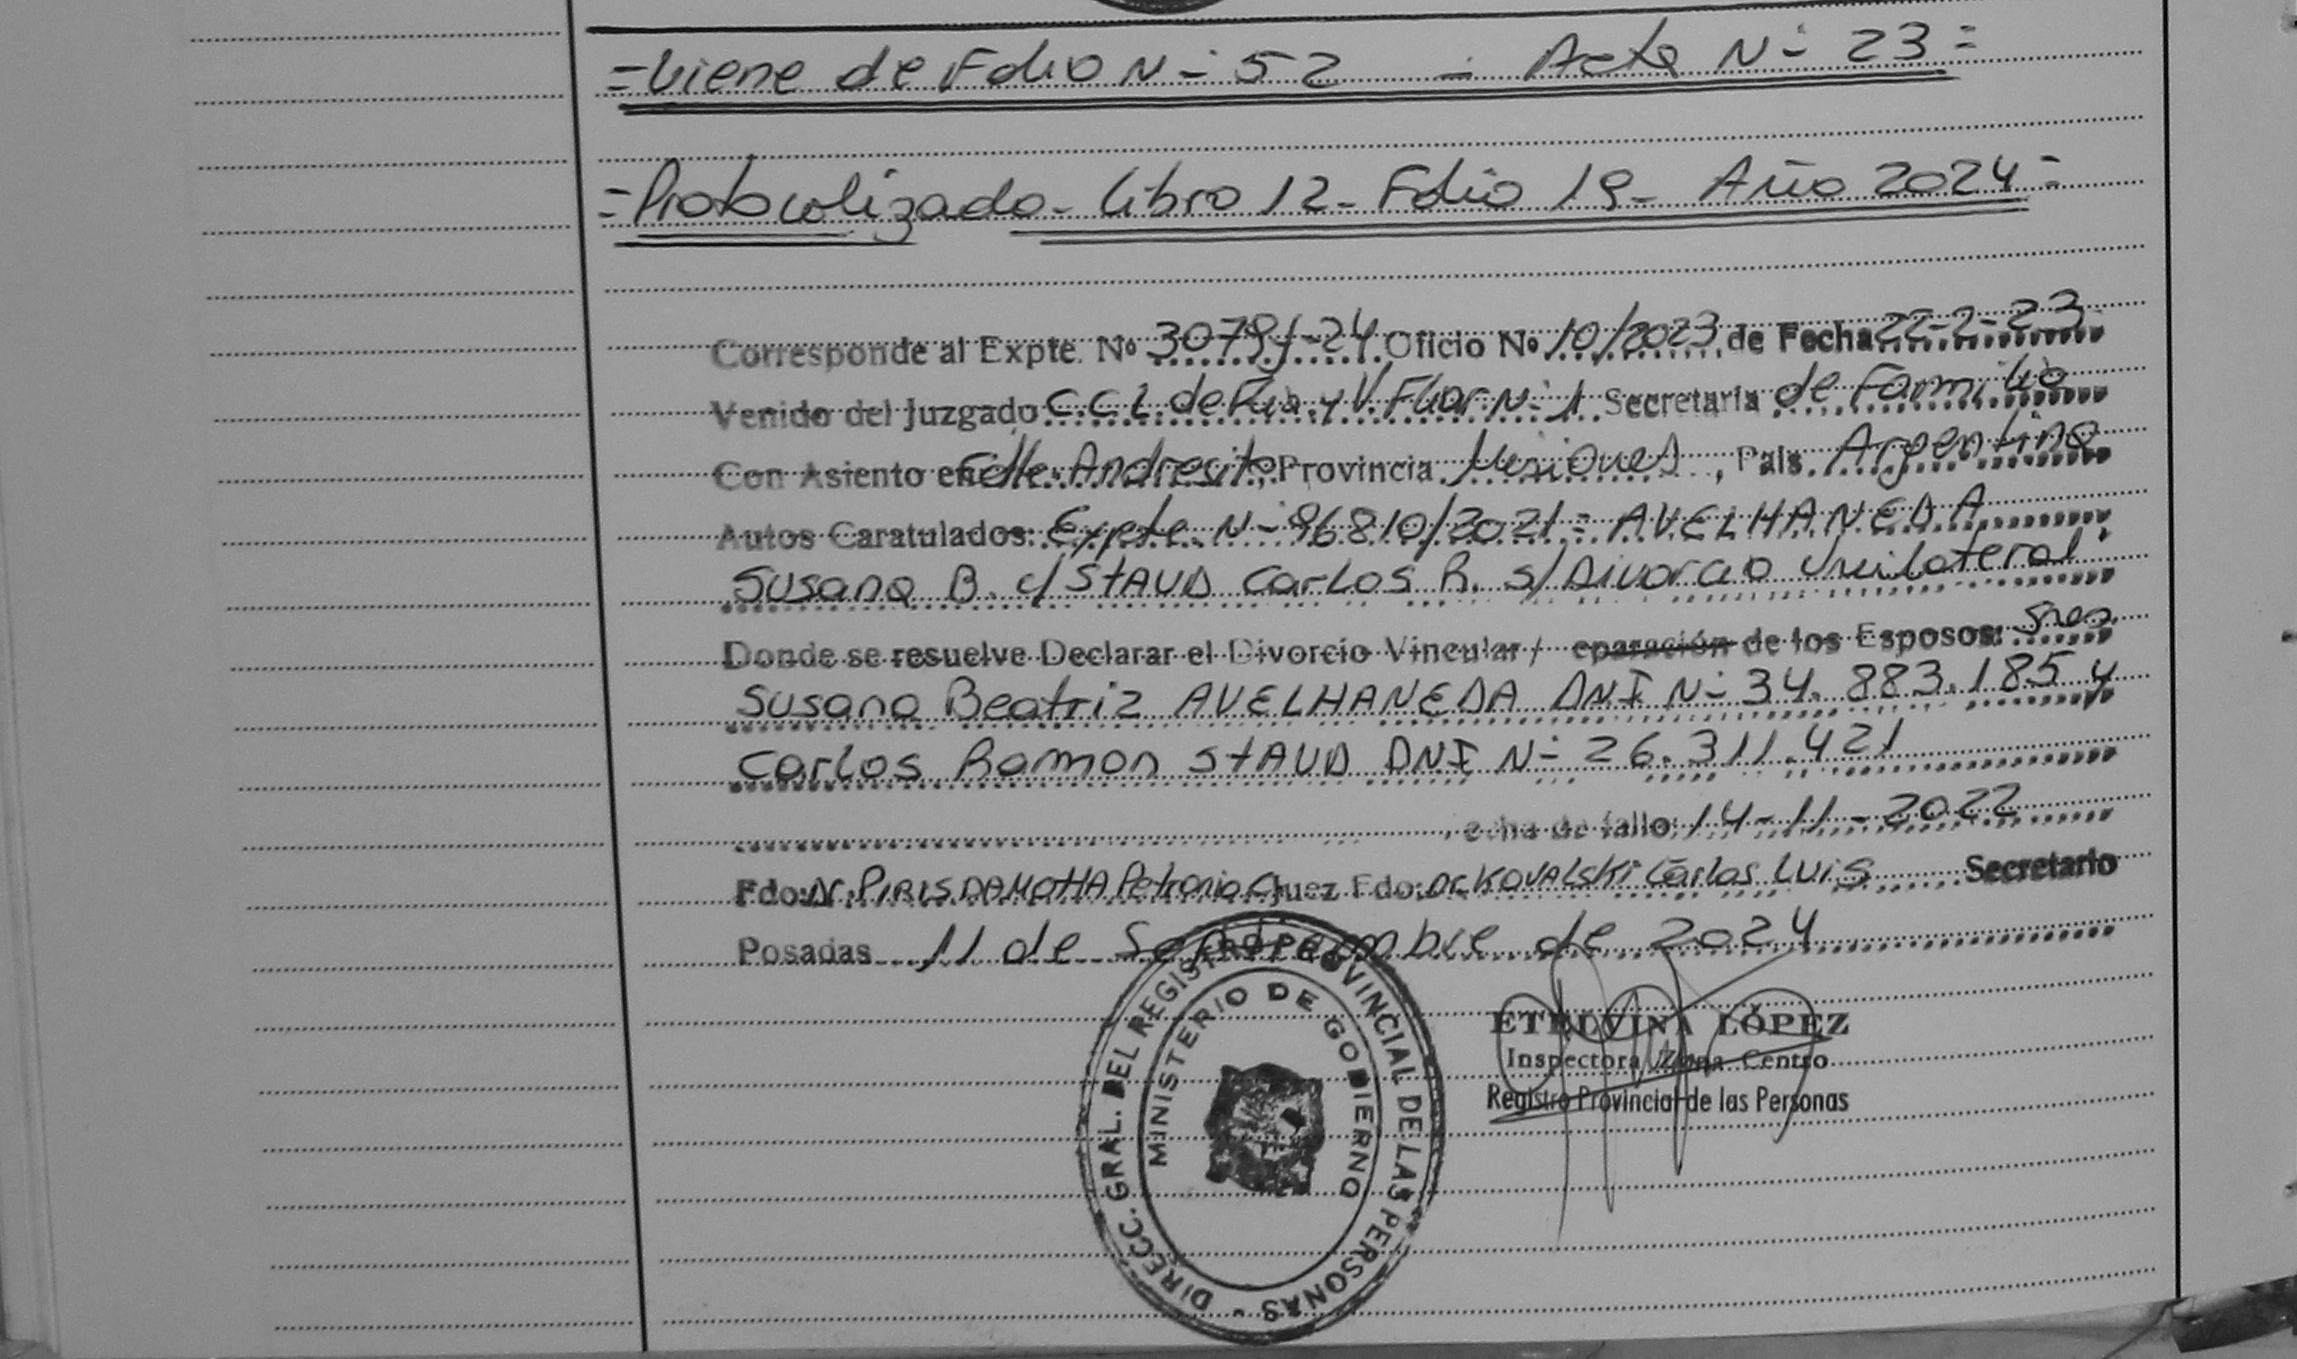 =Viene de Folio N- 52 - Acta N- 23=
=Protocolizado- Libro 12- Folio 19- Año 2024=
Corresponde al Expte. Nº 3079J-24 Oficio Nº 10/2023 de Fecha 22-2-23
Venido del Juzgado C.C.L. de Flia. y V. Fliar N- 1 Secretaria de Familia
Con Asiento en Cdte. Andresito, Provincia Misiones, Pais Argentina
Autos Caratulados: Expte N- 96810/2021= AVELHANEDA
Susana B. c/ StAUD Carlos R. s/ Divorcio Unilateral
Donde se resuelve Declarar el Divorcio Vincular / eparación de los Esposos: Sres.
Susana Beatriz AVELHANEDA DNI N- 34.883.185 y
Carlos Ramon StAUD DNI N- 26.311.421
echa de fallo: 14-11-2022
Fdo: Dr. PIRIS DA MOTTA Petronio Juez Fdo: Dr KOVALSKI Carlos LUIS Secretario
Posadas 11 de Septiembre de 2024
DIRECC. GRAL. DEL REGISTRO PROVINCIAL DE LAS PERSONAS -
MINISTERIO DE GOBIERNO
ETELVINA LÓPEZ
Inspectora Zona Centro
Registro Provincial de las Personas